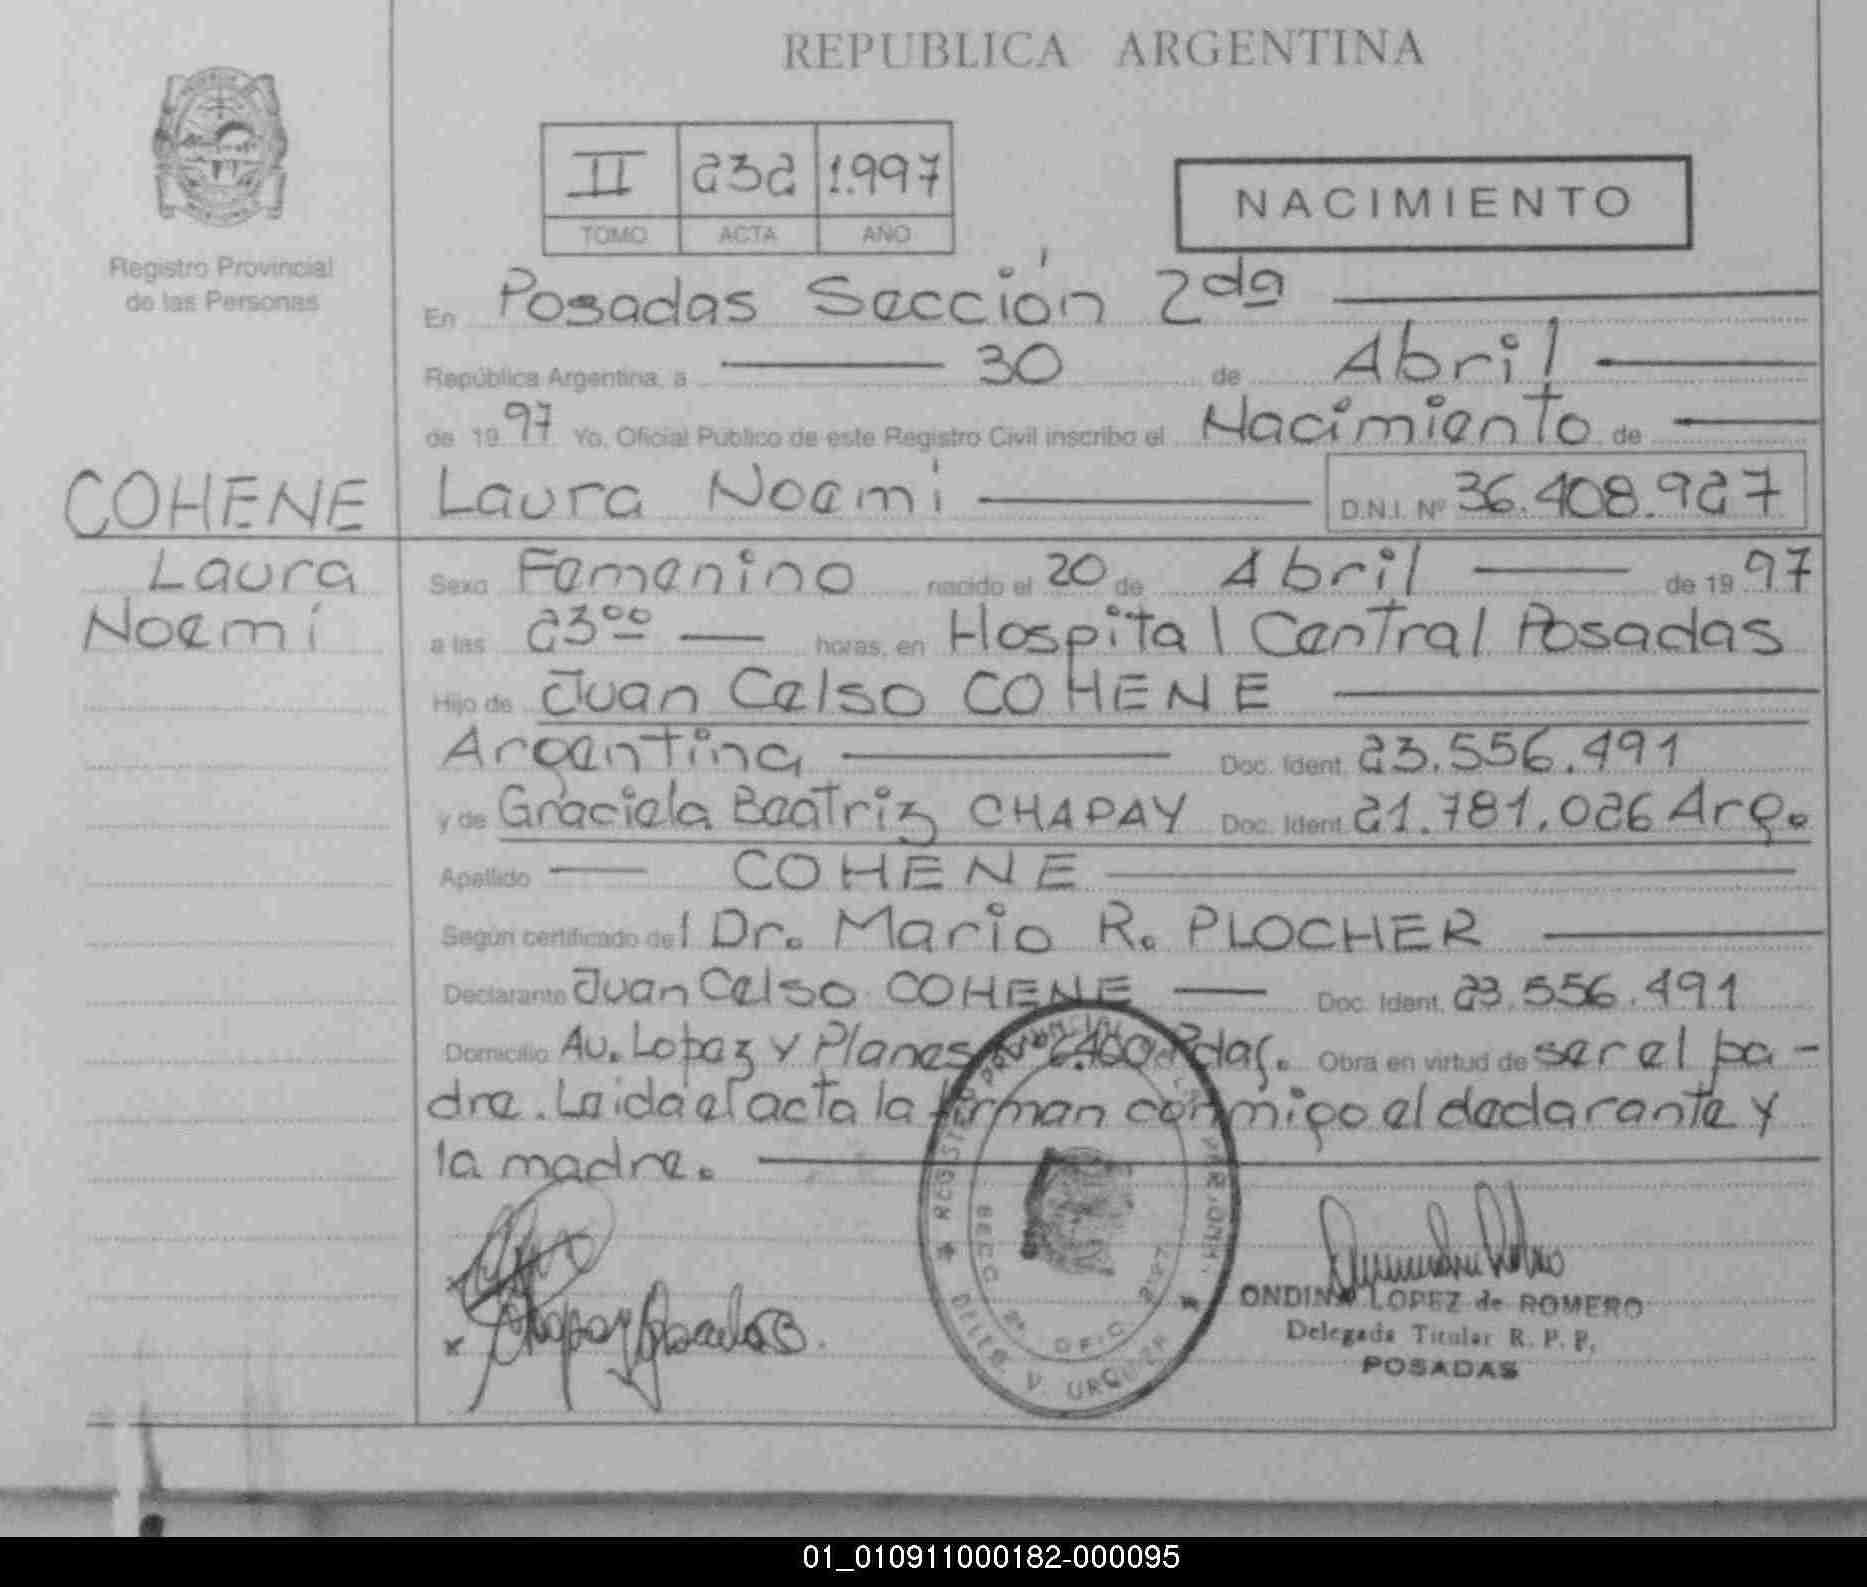 REPUBLICA ARGENTINA
II 232 1.997
TOMO ACTA AÑO
NACIMIENTO
Registro Provincial
de las Personas
En Posadas Sección 2da
República Argentina, a 30 de Abril
de 1997 Yo, Oficial Público de este Registro Civil inscribo el Nacimiento de
COHENE Laura Noemí D.N.I. Nº 36.408.927
Laura Sexo Femenino nacido el 20 de Abril de 1997
Noemí a las 23⁰⁰ horas, en Hospital Central Posadas
Hijo de Juan Celso COHENE
Argentina Doc. Ident. 23.556.491
y de Graciela Beatriz CHAPAY Doc. Ident. 21.781.026 Arg.
Apellido COHENE
Según certificado del Dr. Mario R. PLOCHER
Declarante Juan Celso COHENE Doc. Ident. 23.556.491
Domicilio Av. Lopez y Planes 2.400 Pdas. Obra en virtud de ser el pa-
dre. Leida el acta la firman conmigo el declarante y
la madre.
REGISTRO PROVINCIAL DE LAS PERSONAS
SECC. 2ª OFIC.
DELEG. V. URQUIZA
ONDINA LOPEZ de ROMERO
Delegada Titular R. P. P.
POSADAS
01_010911000182-000095